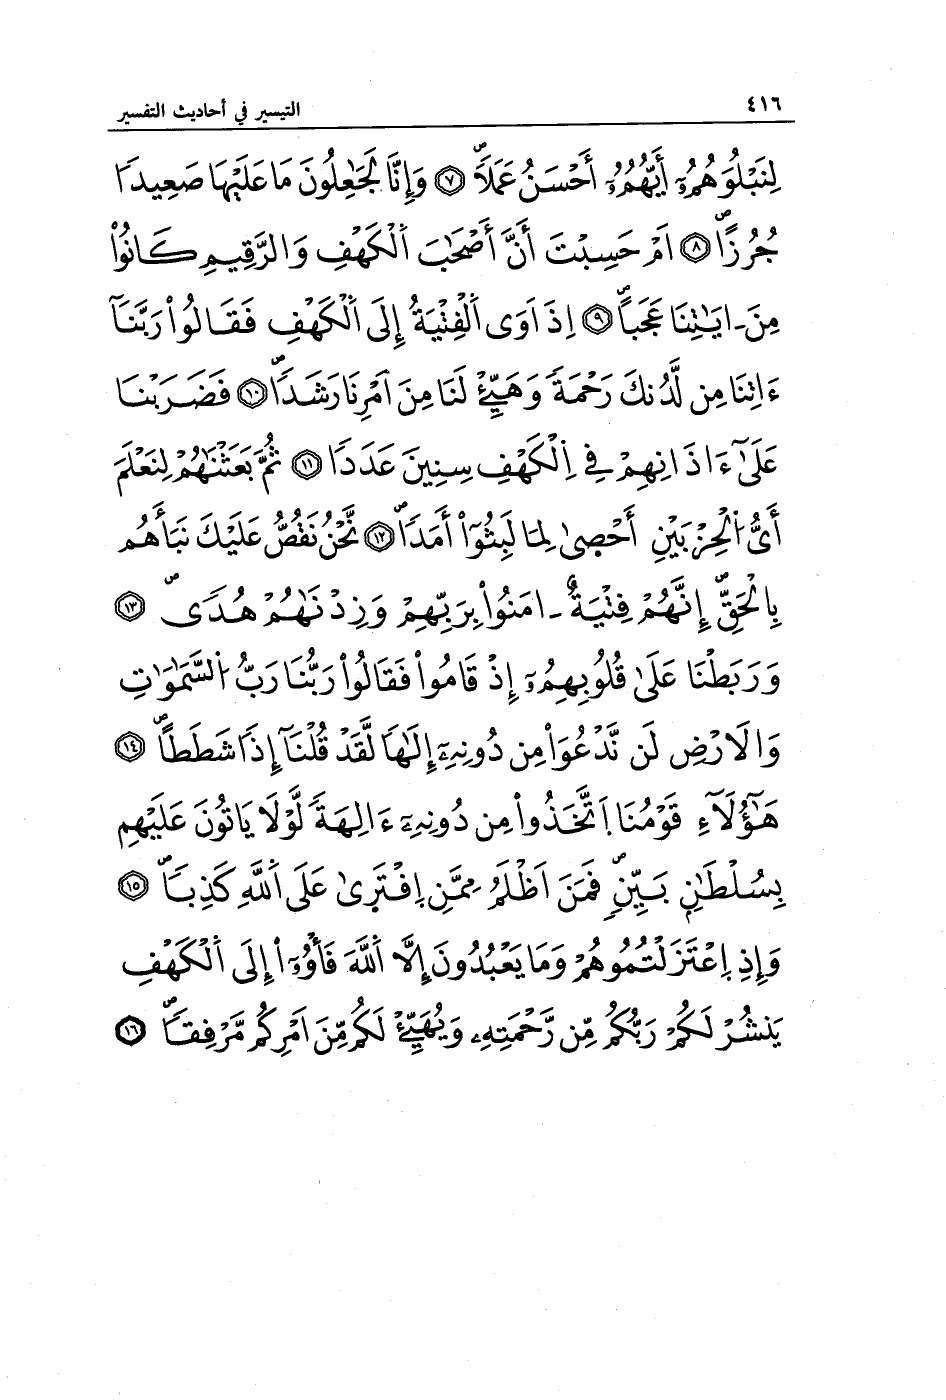 ٤١٦
التيسير في أحاديث التفسير
لِنَبْلُوَهُمُۥٓ أَيُّهُمُۥٓ أَحْسَنُ عَمَلًاۖ ٧ وَإِنَّا لَجَٰعِلُونَ مَا عَلَيْهَا صَعِيدًا
جُرُزًاۖ ٨ اَمْ حَسِبْتَ أَنَّ أَصْحَٰبَ اَلْكَهْفِ وَالرَّقِيمِ كَانُواْ
مِنَ ـ ايَٰتِنَا عَجَبًاۖ ٩ اِذَ اوَى اَلْفِتْيَةُ إِلَى اَلْكَهْفِ فَقَالُواْ رَبَّنَآ
ءَاتِنَا مِن لَّدُنكَ رَحْمَةً وَهَيِّئْ لَنَا مِنَ اَمْرِنَا رَشَدًاۖ ١٠ فَضَرَبْنَا
عَلَىٰٓ ءَاذَانِهِمْ فِے اِلْكَهْفِ سِنِينَ عَدَدًا ١١ ثُمَّ بَعَثْنَٰهُمْ لِنَعْلَمَ
أَيُّ اُلْحِزْبَيْنِ أَحْصٜىٰ لِمَا لَبِثُوٓاْ أَمَدًاۖ ١٢ نَّحْنُ نَقُصُّ عَلَيْكَ نَبَأَهُم
بِالْحَقِّۖ إِنَّهُمْ فِتْيَةٌ ـ امَنُواْ بِرَبِّهِمْ وَزِدْنَٰهُمْ هُدًىۖ ١٣
وَرَبَطْنَا عَلَىٰ قُلُوبِهِمُۥٓ إِذْ قَامُواْ فَقَالُواْ رَبُّنَا رَبُّ اُلسَّمَٰوَٰتِ
وَالَارْضِ لَن نَّدْعُوَاْ مِن دُونِهِۦٓ إِلَٰهًا لَّقَدْ قُلْنَآ إِذًا شَطَطًاۖ ١٤
هَٰٓؤُلَآءِ قَوْمُنَا اَتَّخَذُواْ مِن دُونِهِۦٓ ءَالِهَةً لَّوْلَا يَاتُونَ عَلَيْهِم
بِسُلْطَٰنِۭ بَيِّنٍۖ فَمَنَ اَظْلَمُ مِمَّنِ اِفْتَرٜىٰ عَلَى اَللَّهِ كَذِبًاۖ ١٥
وَإِذِ اِعْتَزَلْتُمُوهُمْ وَمَا يَعْبُدُونَ إِلَّا اَللَّهَ فَأْوُۥٓاْ إِلَى اَلْكَهْفِ
يَنشُرْ لَكُمْ رَبُّكُم مِّن رَّحْمَتِهِۦ وَيُهَيِّئْ لَكُم مِّنَ اَمْرِكُم مَّرْفِقًاۖ ١٦